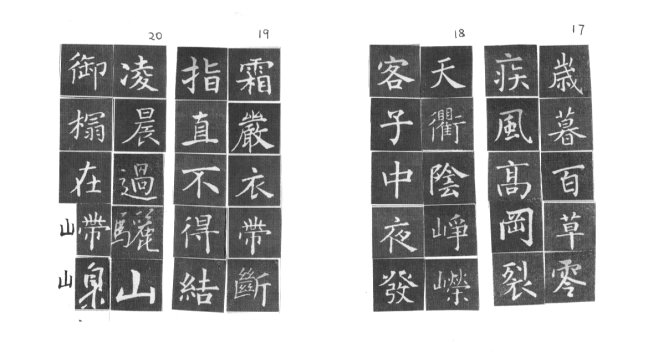 17
歳暮百草零
疾風高岡裂
18
天衢陰崢嶸
客子中夜發
19
霜嚴衣帶斷
指直不得結
20
凌晨過驪山
御榻在嵽嵲